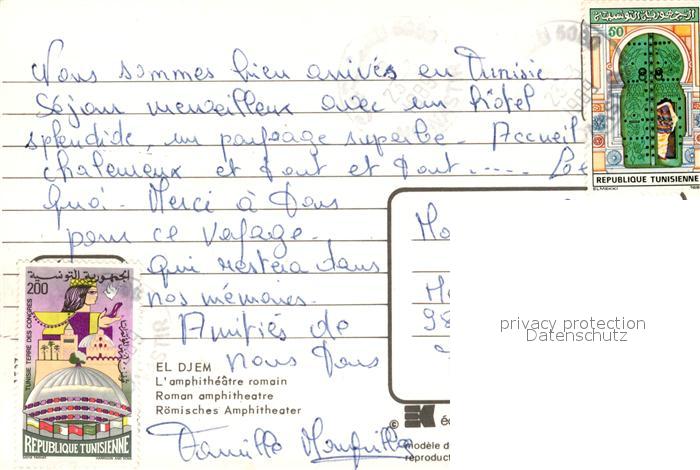 Nous sommes bien arrivés en Tunisie
Séjour merveilleux avec un hôtel
splendide, un paysage superbe. Accueil
chaleureux et tout et tout.....
quoi. Merci à tous
pour ce voyage.
qui restera dans
nos mémoires.
Amitiés de
nous tous
Famille
EL DJEM
L'amphithéâtre romain
Roman amphitheatre
Römisches Amphitheater
©
modèle d
reproduct
privacy protection
Datenschutz
الجمهورية التونسية
60
REPUBLIQUE TUNISIENNE
ELMEKKI
الجمهورية التونسية
200
TUNISIE TERRE DES CONGRES
REPUBLIQUE TUNISIENNE